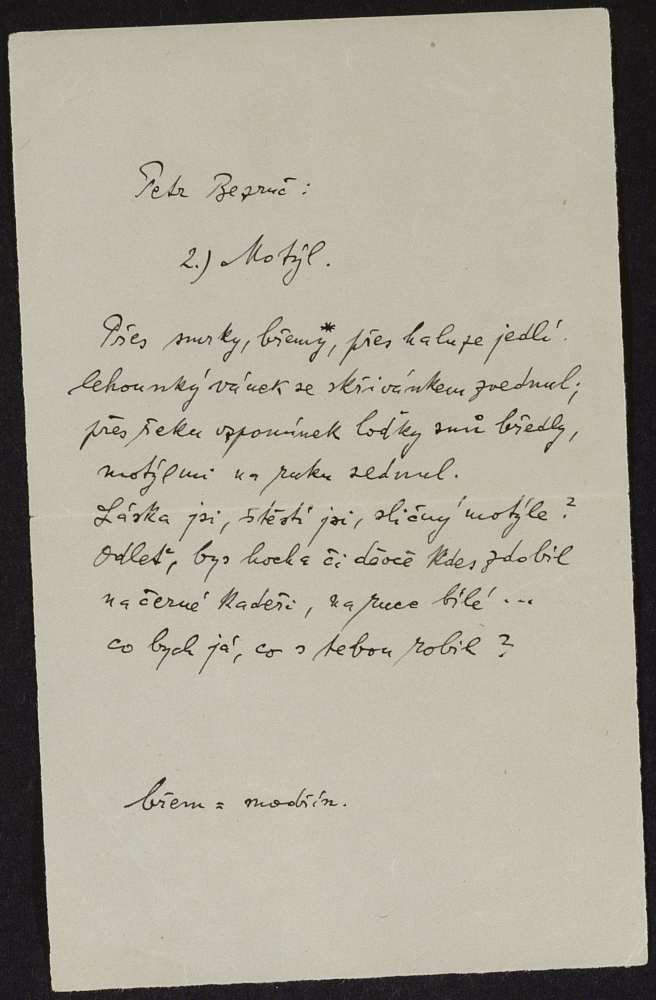 Petr Bezruč:
2.) Motýl.
Přes smrky, břemy*, přes haluze jedlí
lehounký vánek se skřivánkem zvednul;
přes řeku vzpomínek loďky snů bředly,
motýl mi na ruku sednul.
Láska jsi, štěstí jsi, sličný motýle?
Odleť, bys hocha či děvče kdes zdobil
na černé kadeři, na ruce bílé ...
co bych já, co s tebou robil?
břem = modřín.